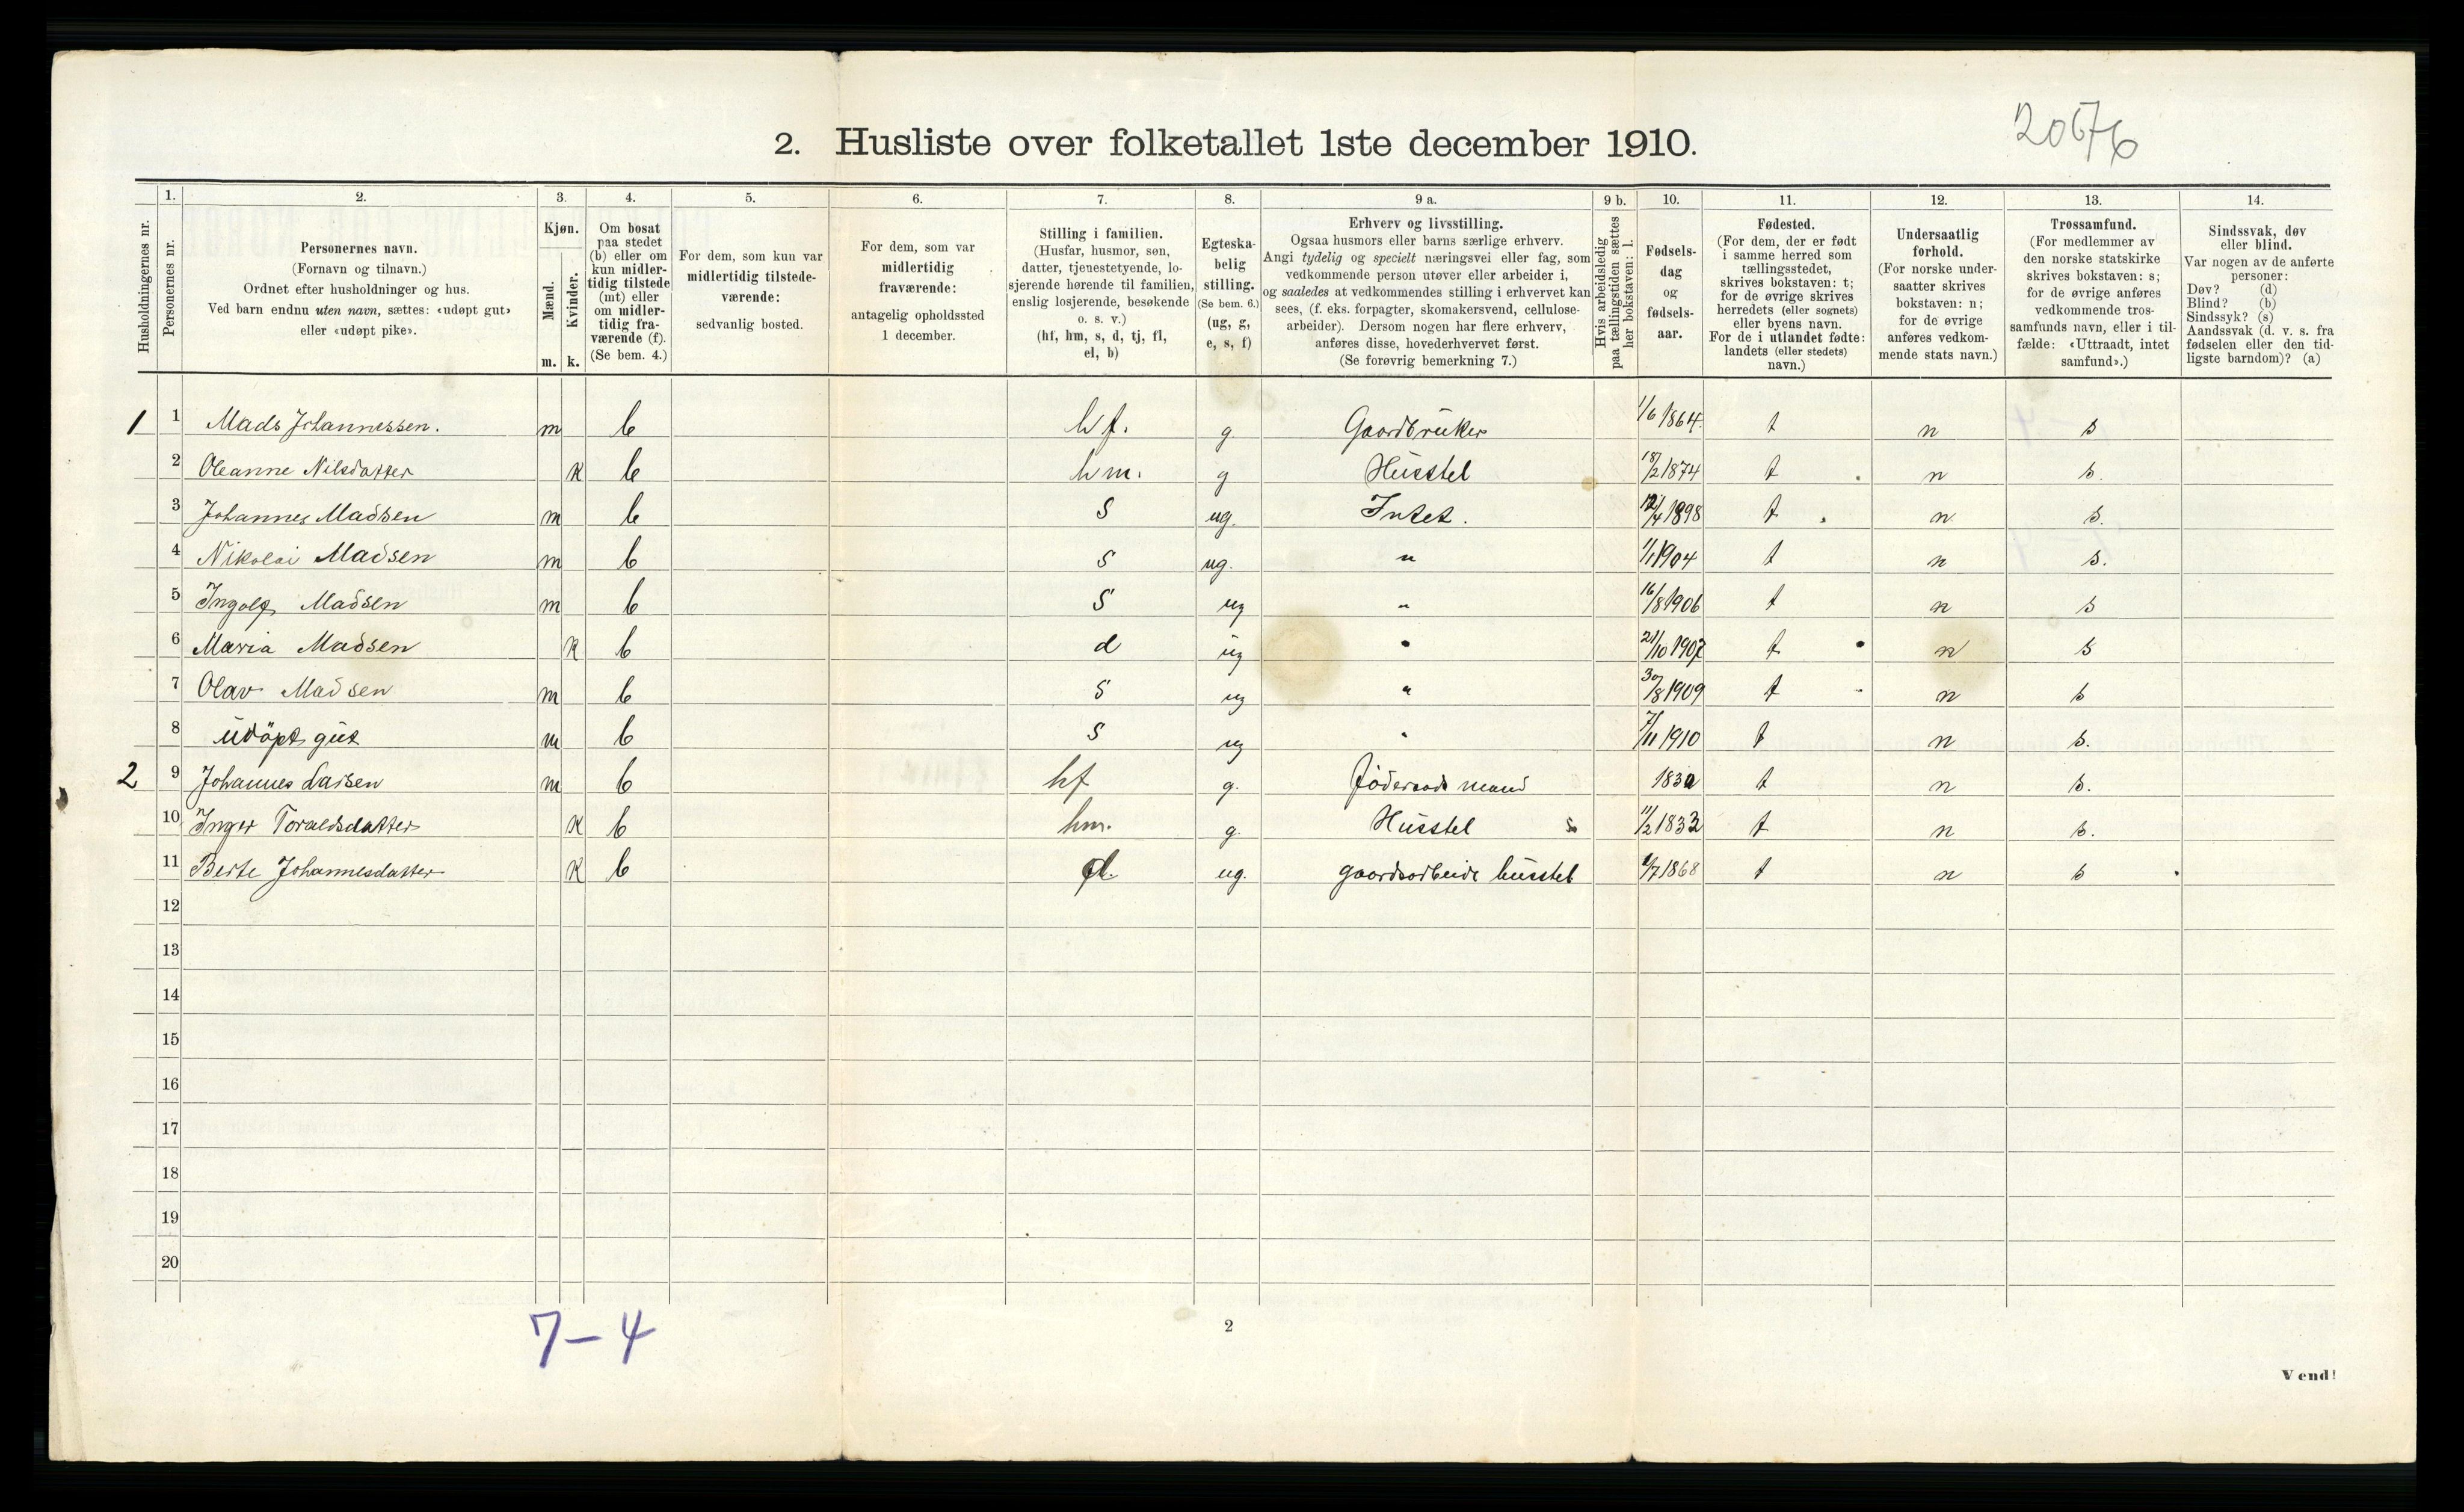 2. Husliste over folketallet 1ste december 1910.
2676
1. 2. 3. 4. 5. 6. 7. 8. 9 a. 9 b. 10. 11. 12. 13. 14.
Husholdningernes nr.
Personernes nr.
Personernes navn.
(Fornavn og tilnavn.)
Ordnet efter husholdninger og hus.
Ved barn endnu uten navn, sættes: «udøpt gut»
eller «udøpt pike».
Kjøn.
Mænd.
Kvinder.
m. k.
Om bosat
paa stedet
(b) eller om
kun midler-
tidig tilstede
(mt) eller
om midler-
tidig fra-
værende (f).
(Se bem. 4.)
For dem, som kun var
midlertidig tilstede-
værende:
sedvanlig bosted.
For dem, som var
midlertidig
fraværende:
antagelig opholdssted
1 december.
Stilling i familien.
(Husfar, husmor, søn,
datter, tjenestetyende, lo-
sjerende hørende til familien,
enslig losjerende, besøkende
o. s. v.)
(hf, hm, s, d, tj, fl,
el, b)
Egteska-
belig
stilling.
(Se bem. 6.)
(ug, g,
e, s, f)
Erhverv og livsstilling.
Ogsaa husmors eller barns særlige erhverv.
Angi tydelig og specielt næringsvei eller fag, som
vedkommende person utøver eller arbeider i,
og saaledes at vedkommendes stilling i erhvervet kan
sees, (f. eks. forpagter, skomakersvend, cellulose-
arbeider). Dersom nogen har flere erhverv,
anføres disse, hovederhvervet først.
(Se forøvrig bemerkning 7.)
Hvis arbeidsledig
paa tællingstiden sættes
her bokstaven: l.
Fødsels-
dag
og
fødsels-
aar.
Fødested.
(For dem, der er født
i samme herred som
tællingsstedet,
skrives bokstaven: t;
for de øvrige skrives
herredets (eller sognets)
eller byens navn.
For de i utlandet fødte:
landets (eller stedets)
navn.)
Undersaatlig
forhold.
(For norske under-
saatter skrives
bokstaven: n;
for de øvrige
anføres vedkom-
mende stats navn.)
Trossamfund.
(For medlemmer av
den norske statskirke
skrives bokstaven: s;
for de øvrige anføres
vedkommende tros-
samfunds navn, eller i til-
fælde: «Uttraadt, intet
samfund».)
Sindssvak, døv
eller blind.
Var nogen av de anførte
personer:
Døv? (d)
Blind? (b)
Sindssyk? (s)
Aandssvak (d. v. s. fra
fødselen eller den tid-
ligste barndom)? (a)
1 1 Mads Johannessen. m b hf. g. Gaardbruker 1/6 1864 t n s
2 Oleanne Nilsdatter k b hm. g Husstel 18/2 1874 t n s.
3 Johannes Madsen m b S ug. Intet. 12/4 1898 t n s.
4 Nikolai Madsen m b S ug. " 1/1 1904 t n s.
5 Ingolf Madsen m b S ug " 16/8 1906 t n s
6 Maria Madsen k b d ug " 21/10 1907 t n s
7 Olav Madsen m b S ug " 30/8 1909 t n s
8 udöpt gut m b S ug " 7/11 1910 t n s.
2 9 Johannes Larsen m b hf g. födesraads mand t n s.
10 Inger Toraldsdatter k b hm. g. Husstel 11/2 1833 t n s.
11 Berte Johannesdatter k b d. ug. gaardsarbeide husstel 1/7 1868 t n s
12
13
14
15
16
17
18
19
20
7-4
2
Vend!